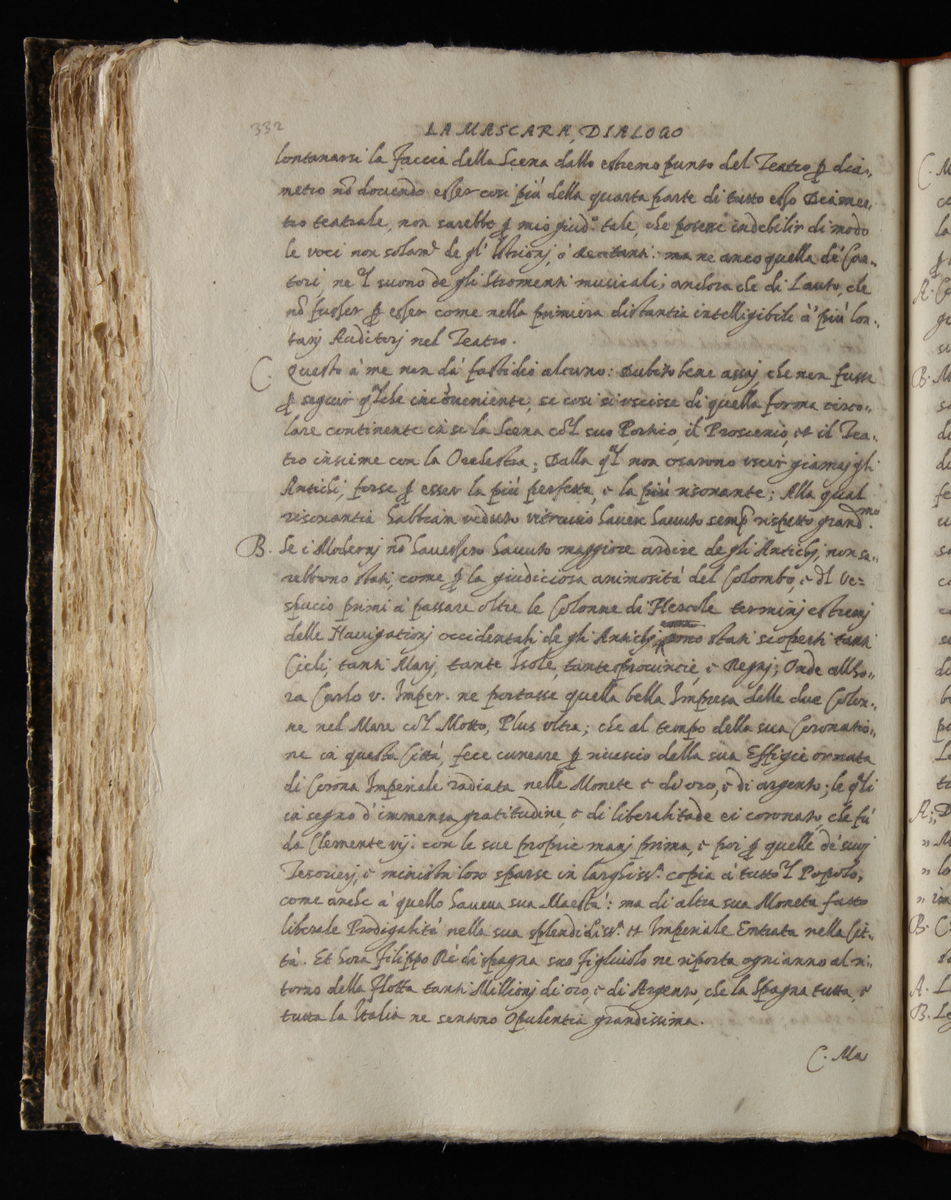 332
LA MASCARA, DIALOGO
lontanarsi la faccia della Scena dallo estremo punto del Teatro p̱ dia-
metro nõ dovendo esser cosi più della quarta parte di tutto esso Diamer-
tro teatrale, non sarebbe p̱ mio giudº tale, che potesse indebilir di modo
le voci non solamᵗᵉ de gl' Istrionj, ò Recitanti: ma ne anco quella de' Can-
tori, ne 'l suono de gli Stromenti musicali, ancora che di Lauto, che
nõ fusser p̱ esser come nella primiera distantia intelligibile à più lon-
tanj Auditorj nel Teatro.
C. Questo à me non dà fastidio alcuno: Dubito bene assaj, che non fusse
p̱ seguir qualche incõveniente, se cosi si uscisse di quella forma circo-
lare continente in se la Scena cõ 'l suo Portico, il Proscenio, et il Tea-
tro insieme con la Orchestra; Dalla qͣl non osarono uscir giamaj gli
Antichi, forse p̱ esser la più perfetta, e la più risonante; Alla qual
risonantia habbiam veduto vitruvio haver havuto semp̱ rispetto grandᵐᵒ.
B. Se i Modernj nõ havessero havuto maggiore ardire de gli Antichj, non sa-
rebbono stati, come p̱ la giudiciosa animosità del Colombo, e d'l Ve-
spucio primi à passare oltre le Colonne di Hercole terminj estremj
delle Navigationj occidentali de gli Antichj, stati scoperti tanti
Cieli, tanti Marj, tante Isole, tante provincie, e Regnj; Onde allho-
ra Carlo v. Imper. ne portasse quella bella Impresa delle due Colon-
ne nel Mare cõ 'l Motto, Plus ultra; che al tempo della sua Coronatio-
ne in questa Città, fece cuneare p̱ rivescio della sua Effigie ornata
di Corona Imperiale radiata nelle Monete e di oro, e di argento; le q̃li
in segno d' immensa gratitudine, e di liberalitade ei coronato, che fù
da Clemente vij. con le sue proprie manj prima, e poi p̱ quelle de' suoj
Tesorierj, e ministri loro sparse in larghissᵃ. copia à tutto 'l Popolo,
come anche à quello haveva sua Maestà: ma di altra sua Moneta fatto
liberale Prodigalità nella sua splendidissᵃ. et Imperiale Entrata nella Cit-
tà. Et hora Filippo Rè di spagna suo figliuolo ne riporta ogni anno al ri-
torno della Flotta tanti Millionj di oro, e di Argento, che la Spagna tutta, e
tutta la Italia ne sentono Opulentia grandissima.
C. Ma